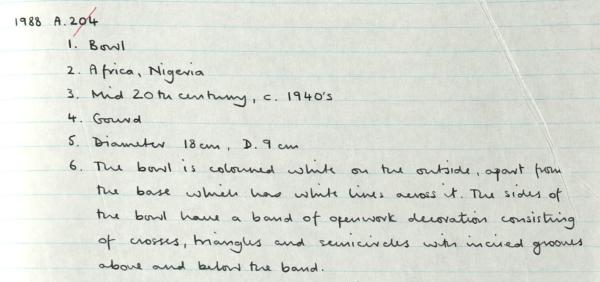 1988 A.204
1. Bowl
2. Africa, Nigeria
3. Mid 20th century, c. 1940's
4. Gourd
5. Diameter 18cm, D. 9 cm
6. The bowl is coloured white on the outside, apart from
the base which has white lines across it. The sides of
the bowl have a band of openwork decoration consisting
of crosses, triangles and semicircles with incised grooves
above and below the band.